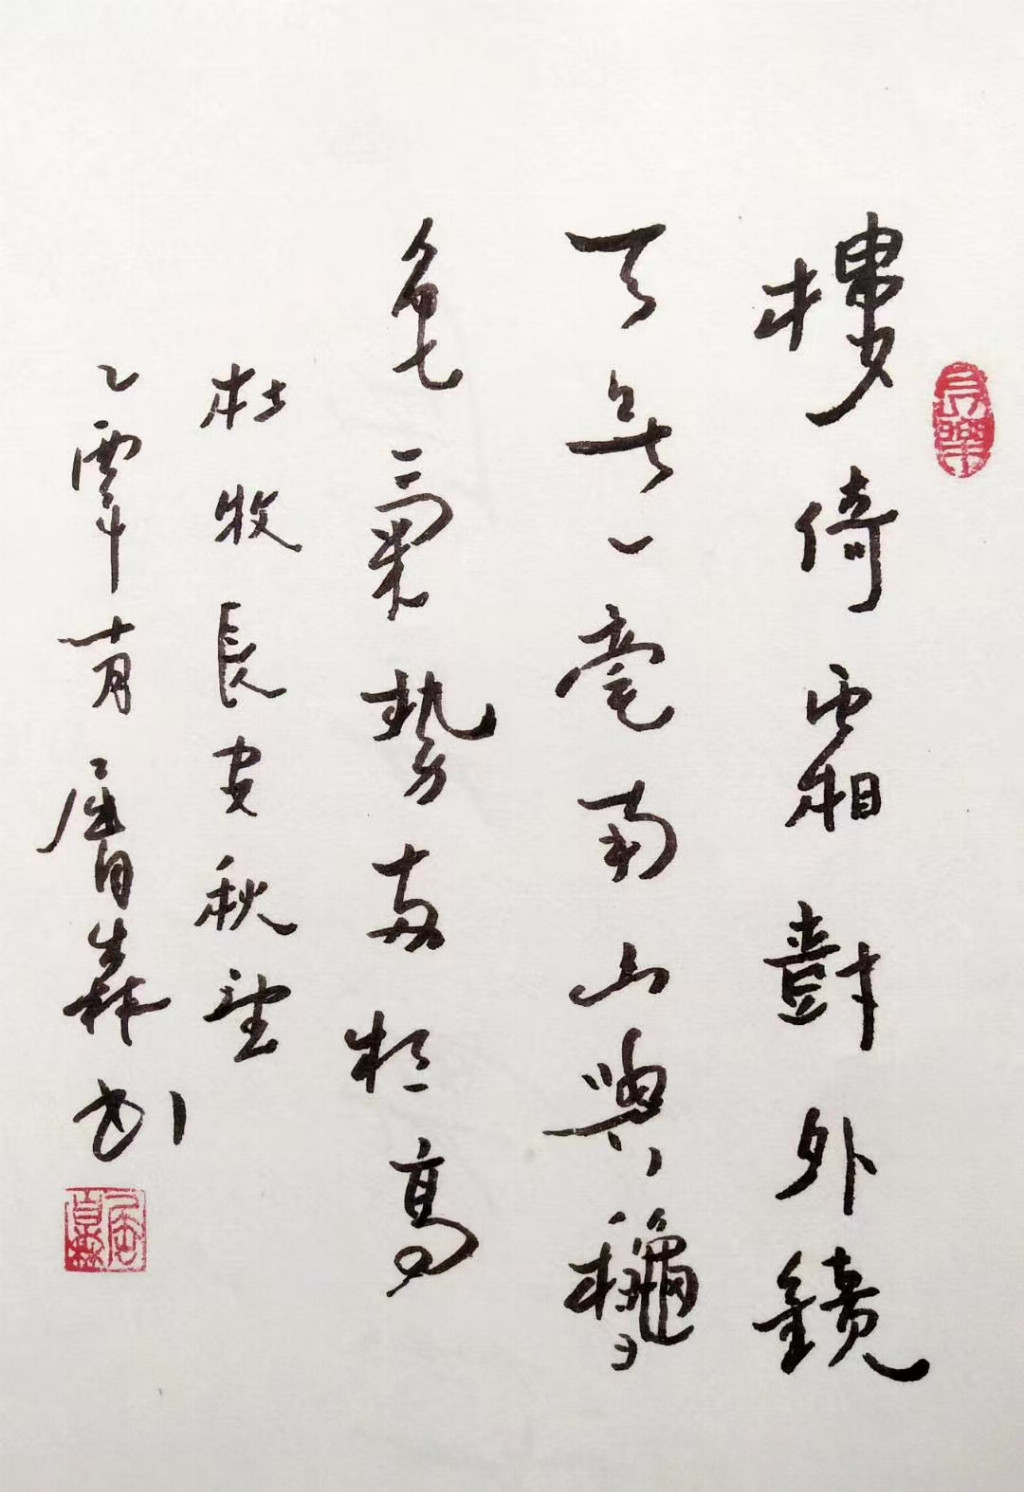 樓倚霜尌外鏡
天無一毫南山與龝
色氣勢兩相高
杜牧長安秋望
乙十月森书